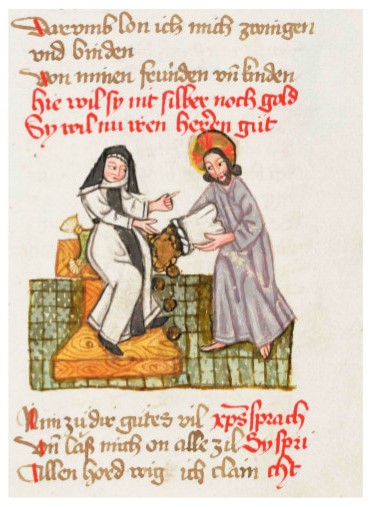 Darumb lon ich mich zwingen
vnd binden
Von minen frúnden vn̄ kinden
hie wil sy nit silber noch gold
Sy wil nu iren heren gůt
Nim zu dir gutes vil xp̄s sprach
Vn̄ laß mich on alle zil Sy spri
Allen hord wig ich clain cht